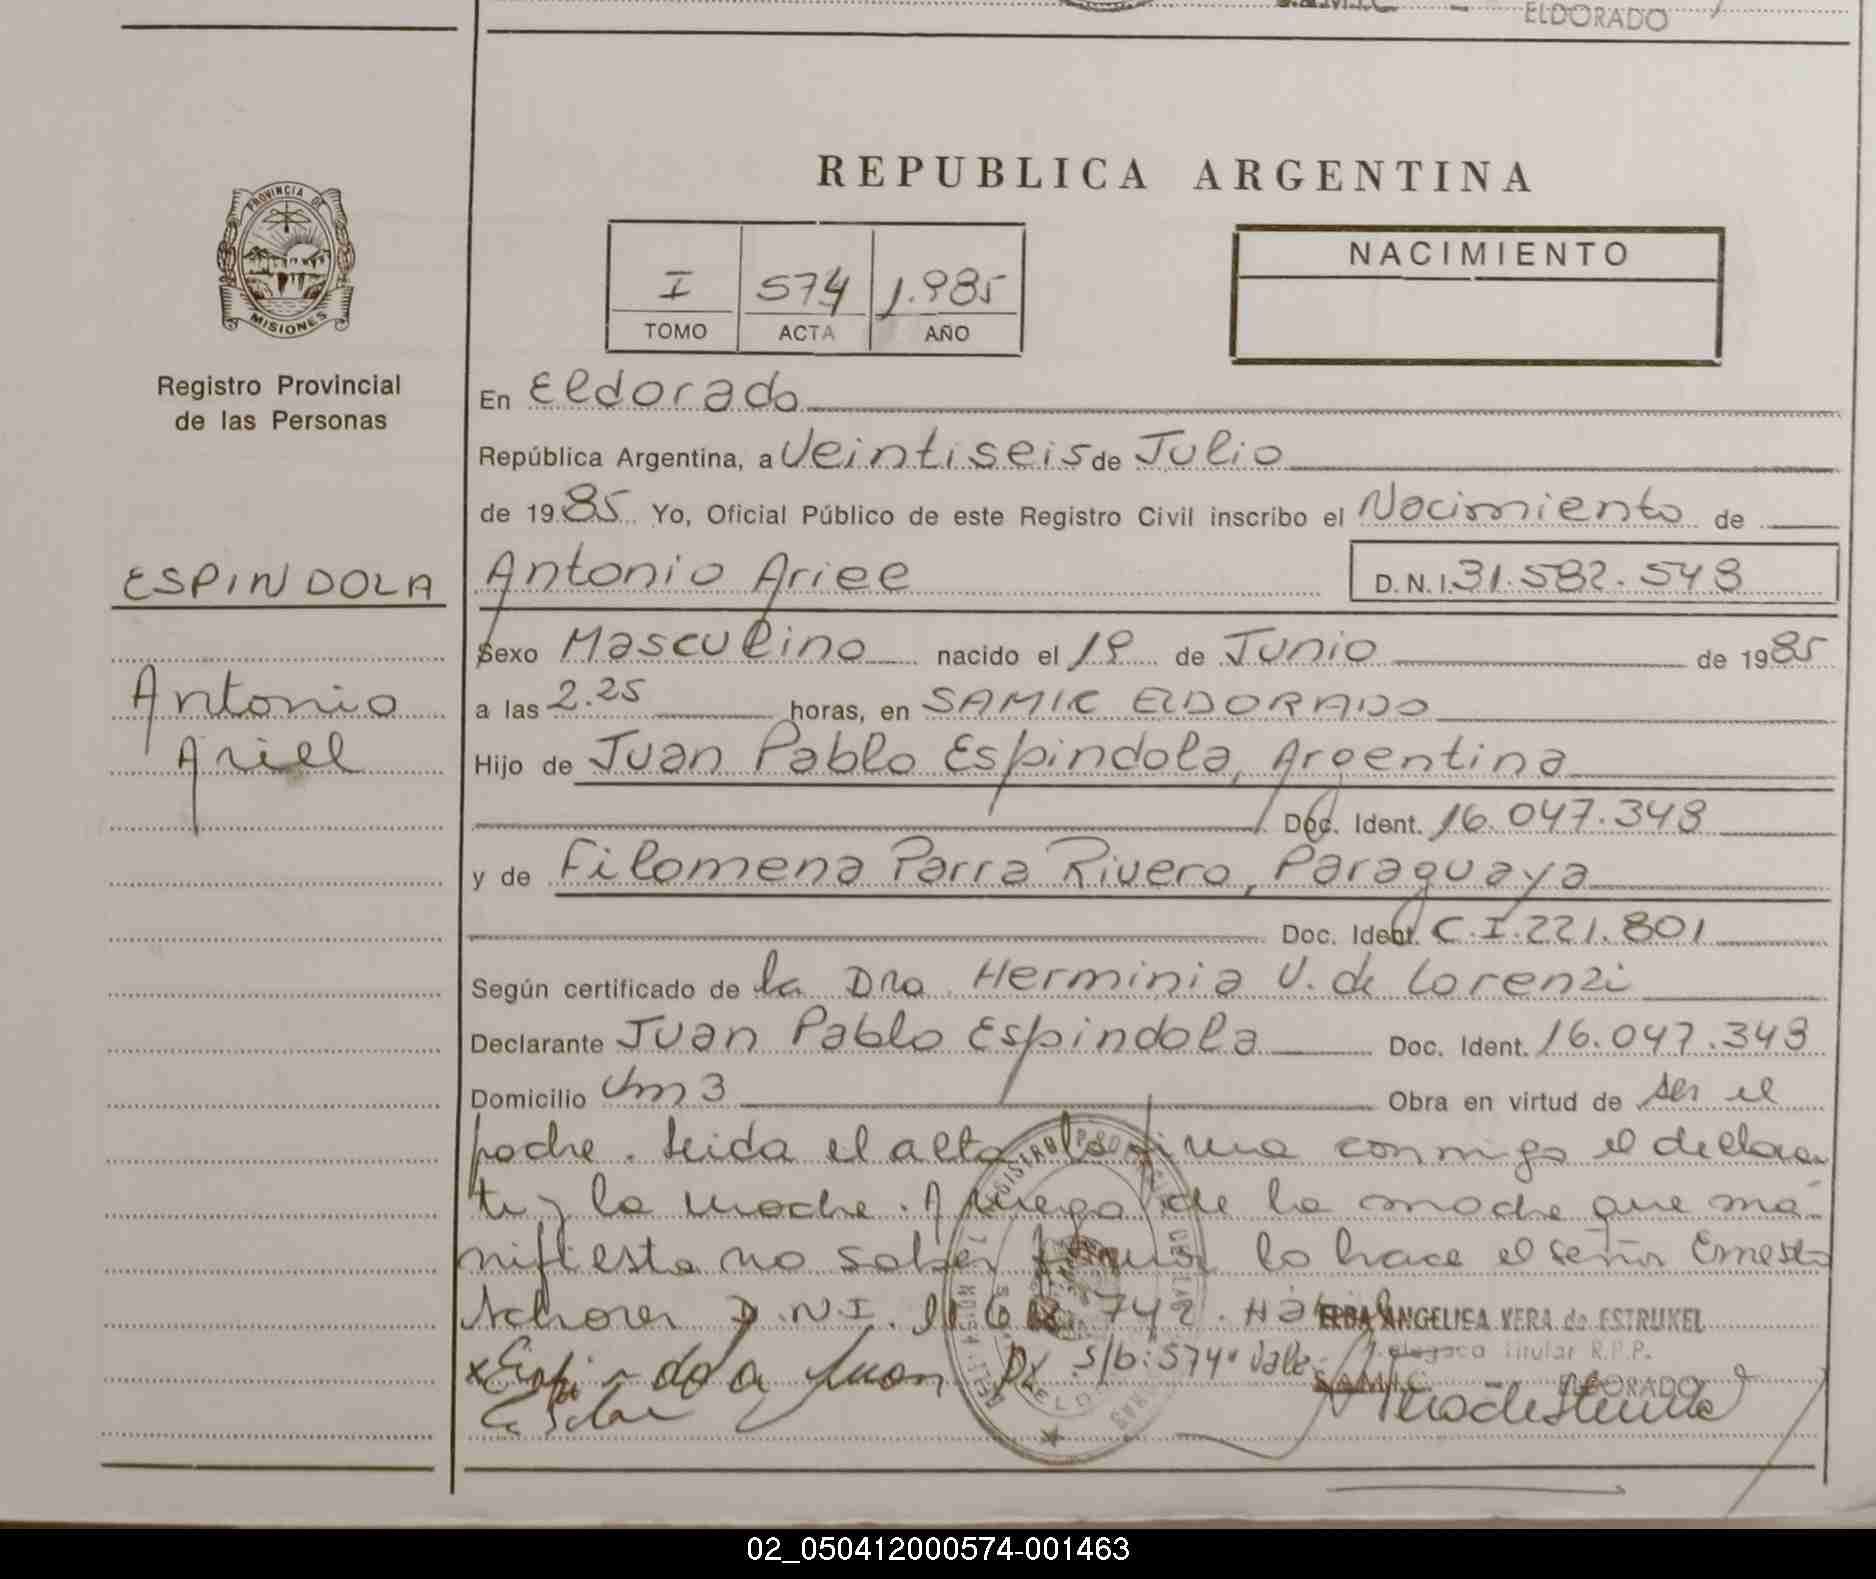 ELDORADO
REPUBLICA ARGENTINA
PROVINCIA DE
MISIONES
Registro Provincial
de las Personas
I 574 1.985
TOMO ACTA AÑO
NACIMIENTO
En Eldorado
República Argentina, a Veintiseis de Julio
de 1985 Yo, Oficial Público de este Registro Civil inscribo el Nacimiento de
ESPINDOLA
Antonio Ariel
Antonio Ariel D.N.I. 31.582.543
Sexo Masculino nacido el 19 de Junio de 1985
a las 2.25 horas, en SAMIC ELDORADO
Hijo de Juan Pablo Espindola, Argentina
Doc. Ident. 16.047.343
y de Filomena Parra Rivero, Paraguaya
Doc. Ident. C.I. 221.801
Según certificado de la Dra. Herminia V. de Lorenzi
Declarante Juan Pablo Espindola Doc. Ident. 16.047.343
Domicilio Km 3 Obra en virtud de ser el
padre. Leida el acta la firma conmigo el declaran
te y la madre. A ruego de la madre que ma
nifiesta no saber firmar lo hace el señor Ernesto
D.N.I. 742.
Espindola Juan s/b: 574" Vale
ELBA ANGELICA VERA de ESTRUKEL
Delegada Titular R.P.P.
SAMIC - ELDORADO
02_050412000574-001463